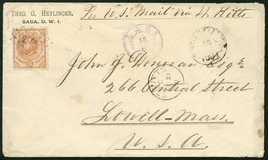 THEO. G. HEYLIGER,
SABA, D. W. I.
Per U.S. Mail via St. Kitts
John J. Donovan Esqr.
266 Central Street
Lowell - Mass
U. S. A